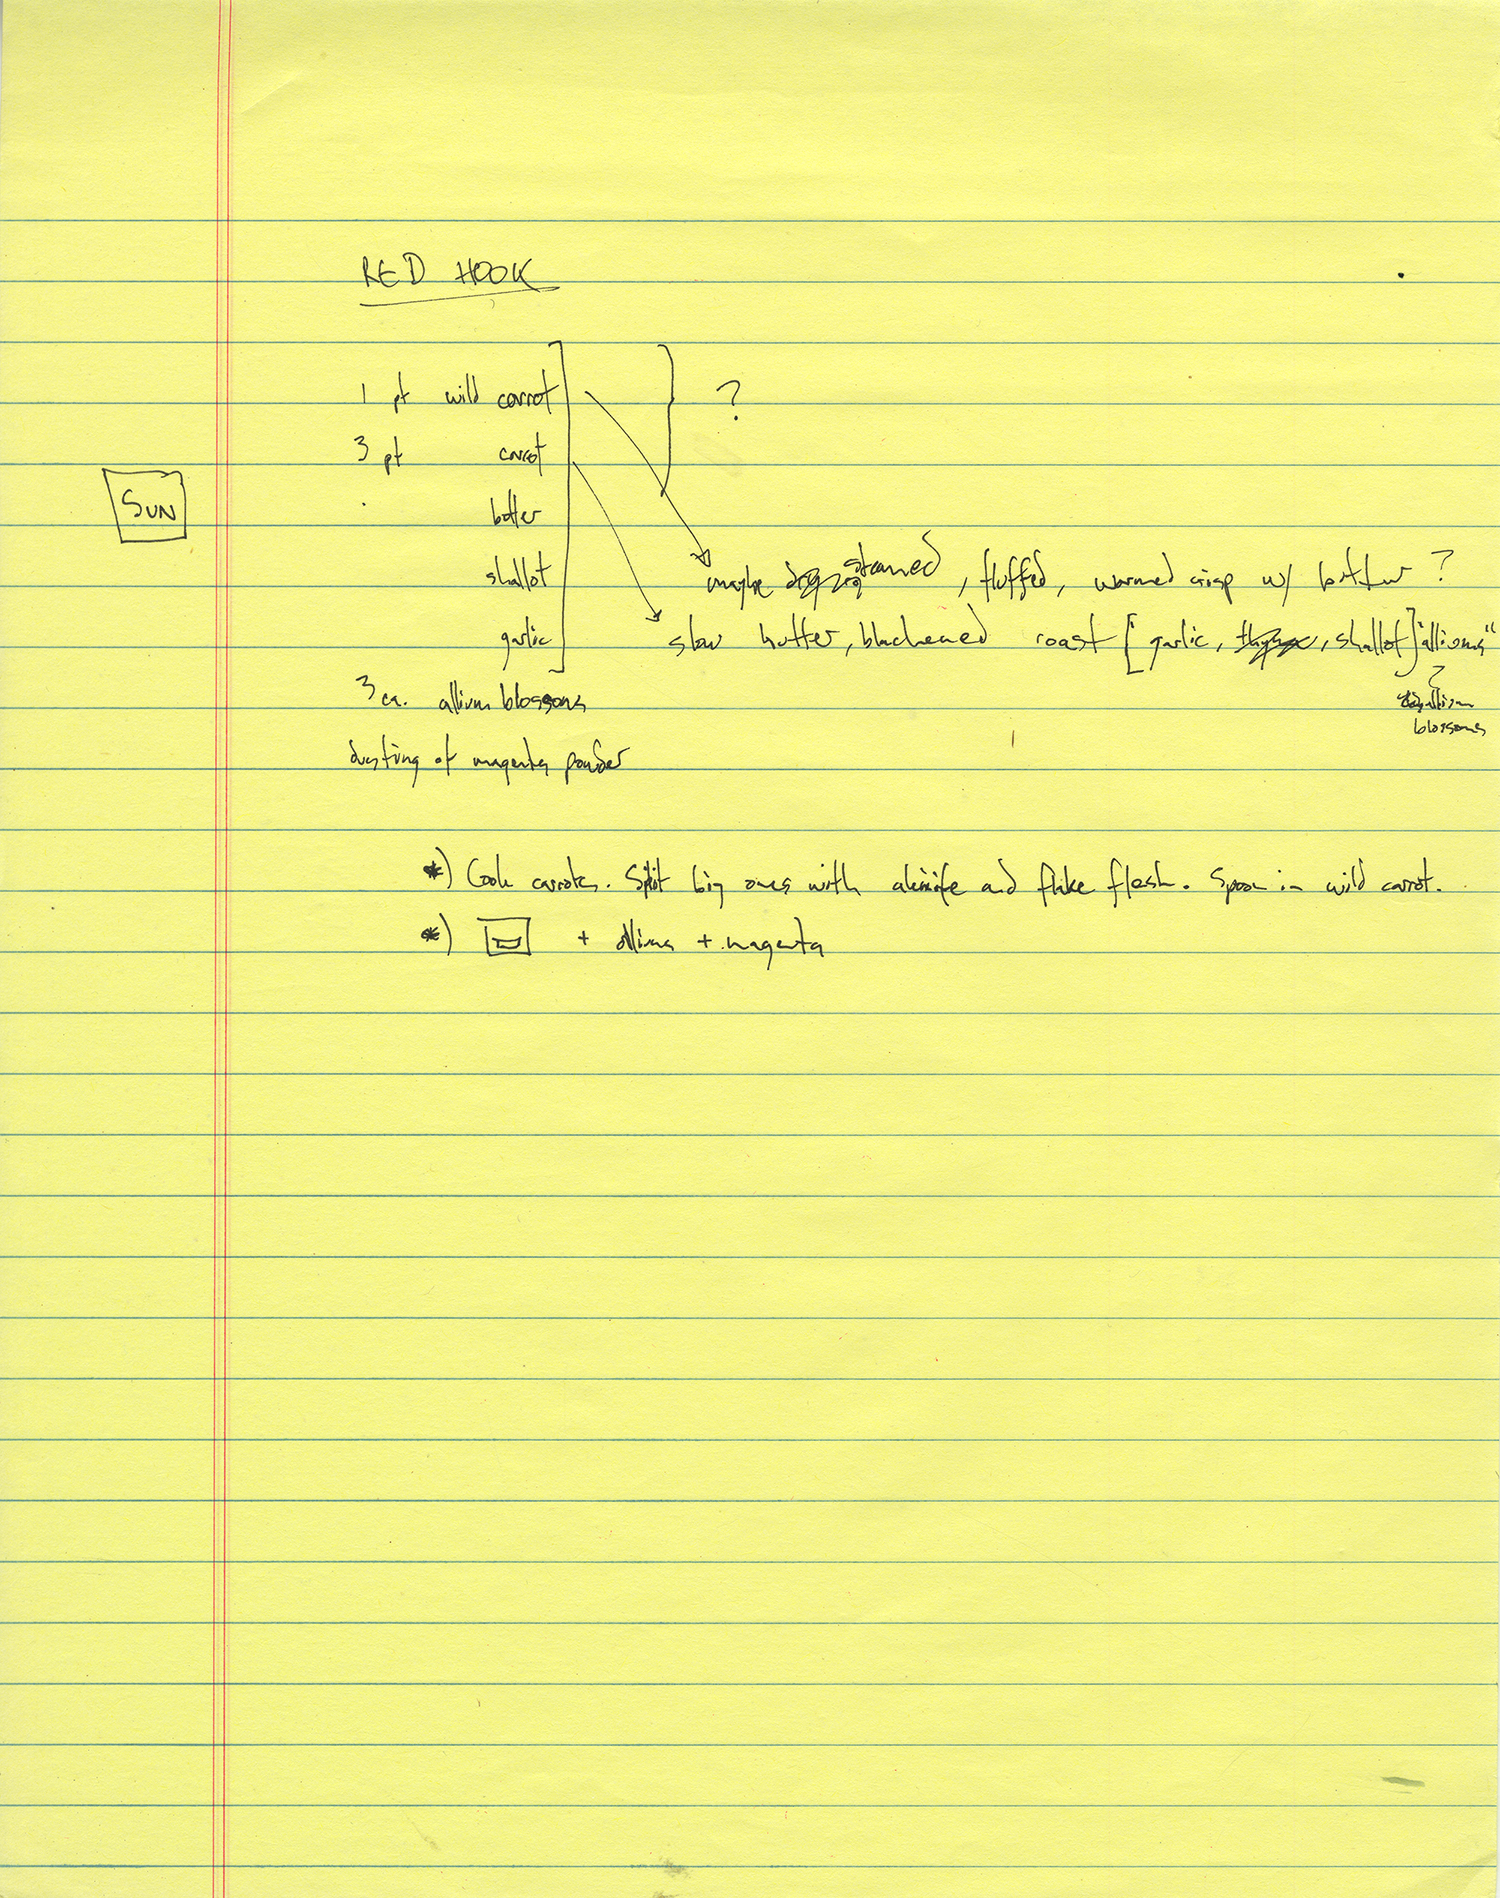 RED HOOK
1 pt wild carrot ] } ?
3 pt carrot
SUN
butter
shallot
maybe steamed, fluffed, warmed crisp w/ butter ?
garlic
slow butter, blackened roast [garlic, thyme, shallot] "alliums"
3 ea. allium blossoms
? allium
blossoms
dusting of magenta powder
*) Cook carrots. Split big ones with a knife and flake flesh. Spoon in wild carrot.
*) + alliums + magenta